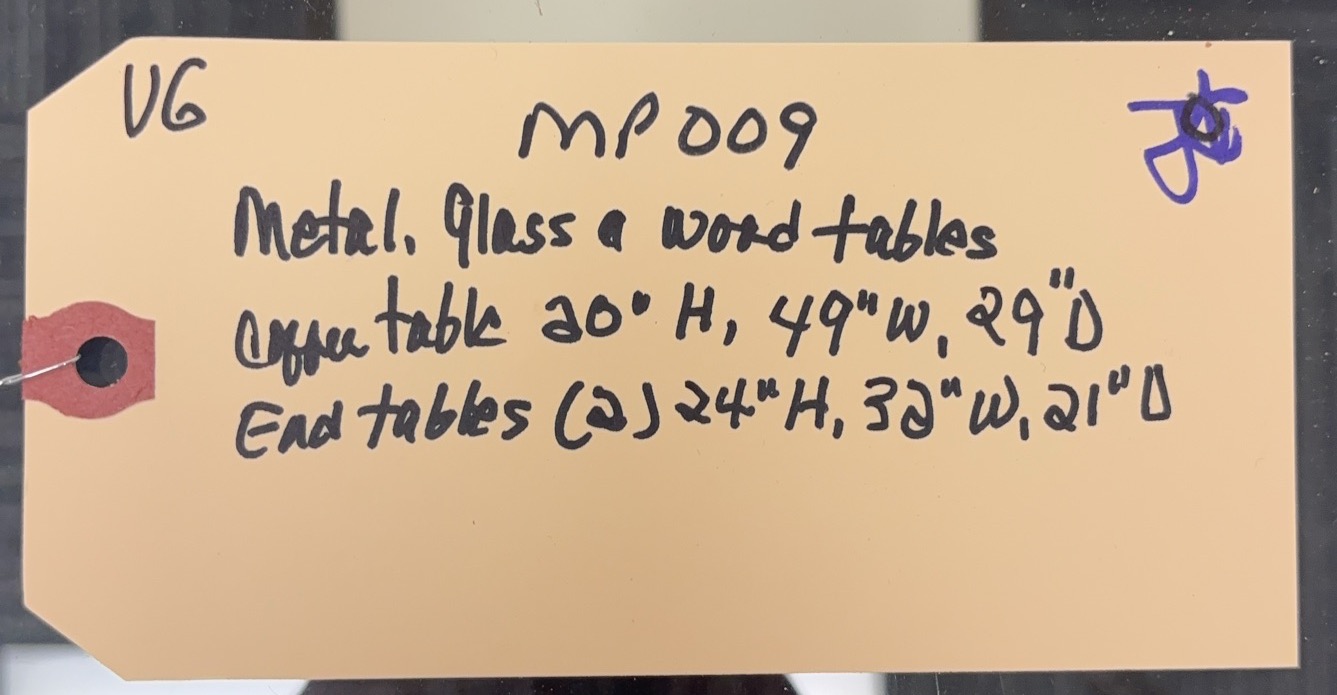 VG
MP009
Metal, Glass & wood tables
Coffee table 20" H, 49" W, 29" D
End tables (2) 24" H, 32" W, 21" D